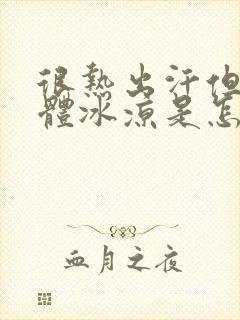 很熱出汗但
體冰涼是怎
血月之夜